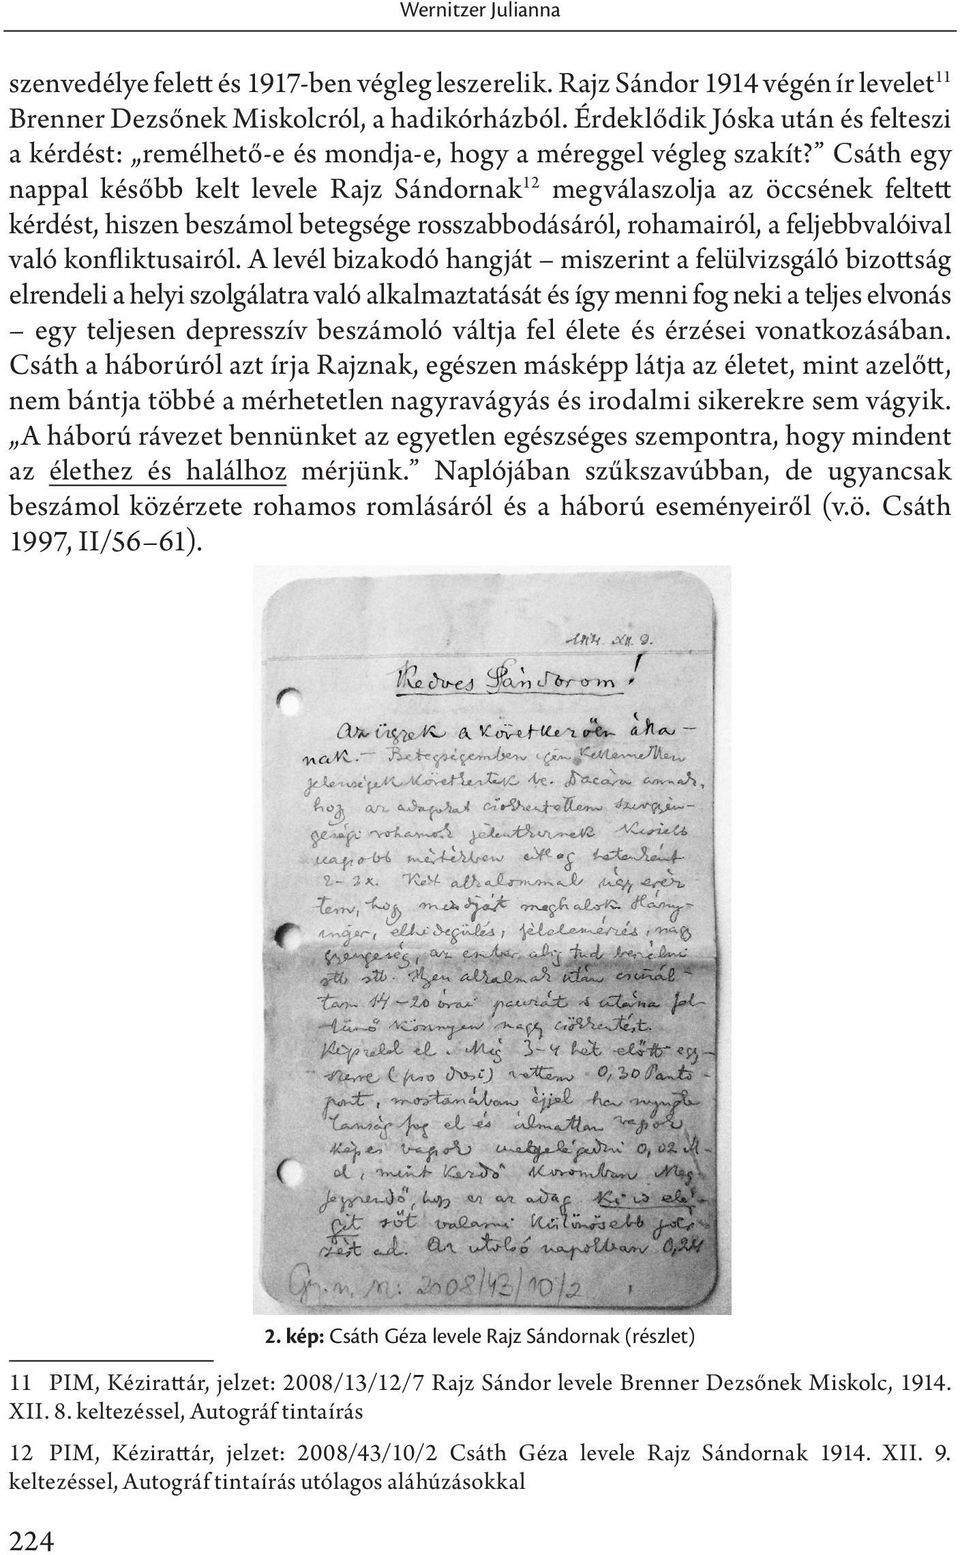 Wernitzer Julianna
szenvedélye felett és 1917-ben végleg leszerelik. Rajz Sándor 1914 végén ír levelet¹¹
Brenner Dezsőnek Miskolcról, a hadikórházból. Érdeklődik Jóska után és felteszi
a kérdést: „remélhető-e és mondja-e, hogy a méreggel végleg szakít?” Csáth egy
nappal később kelt levele Rajz Sándornak¹² megválaszolja az öccsének feltett
kérdést, hiszen beszámol betegsége rosszabbodásáról, rohamairól, a feljebbvalóival
való konfliktusairól. A levél bizakodó hangját – miszerint a felülvizsgáló bizottság
elrendeli a helyi szolgálatra való alkalmaztatását és így menni fog neki a teljes elvonás
– egy teljesen depresszív beszámoló váltja fel élete és érzései vonatkozásában.
Csáth a háborúról azt írja Rajznak, egészen másképp látja az életet, mint azelőtt,
nem bántja többé a mérhetetlen nagyravágyás és irodalmi sikerekre sem vágyik.
„A háború rávezet bennünket az egyetlen egészséges szempontra, hogy mindent
az élethez és halálhoz mérjünk.” Naplójában szűkszavúbban, de ugyancsak
beszámol közérzete rohamos romlásáról és a háború eseményeiről (v.ö. Csáth
1997, II/56–61).
1914. XII. 9.
Kedves Sándorom!
Az ügyek a következően álla-
nak. – Betegségemben igen kellemetlen
jelenségek következtek be. Dacára annak,
hogy az adagokat csökkentettem szívgyen-
geségi rohamok jelentkeznek kisebb
nagyobb mértékben átlag hetenként
2-3x. Két alkalommal úgy érez
tem, hogy mindjárt meghalok. Hány-
inger, elhidegülés, félelemérzés, nagy
gyengeség, az ember alig tud beszélni
stb stb. Ilyen alkalmak után csinál-
tam 14-20 órai pauzát s utána fel-
tünő könnyen nagy csökkentést.
Képzeld el. Még 3-4 hét előtt egy-
szerre (pro dosi) vettem 0,30 Panto-
pont, mostanában éjjel ha nyugta
lanság fog el és álmatlan vagyok
képes vagyok megelégedni 0,02 M-
el, mint kezdő koromban. Meg
jegyzendő, hogy ez az adag ki is elé-
gít sőt valami különösebb jól
érzést ad. Az utolsó napokban 0,24
Gy. n. n.: 2008/43/10/2
2. kép: Csáth Géza levele Rajz Sándornak (részlet)
11 PIM, Kézirattár, jelzet: 2008/13/12/7 Rajz Sándor levele Brenner Dezsőnek Miskolc, 1914.
XII. 8. keltezéssel, Autográf tintaírás
12 PIM, Kézirattár, jelzet: 2008/43/10/2 Csáth Géza levele Rajz Sándornak 1914. XII. 9.
keltezéssel, Autográf tintaírás utólagos aláhúzásokkal
224